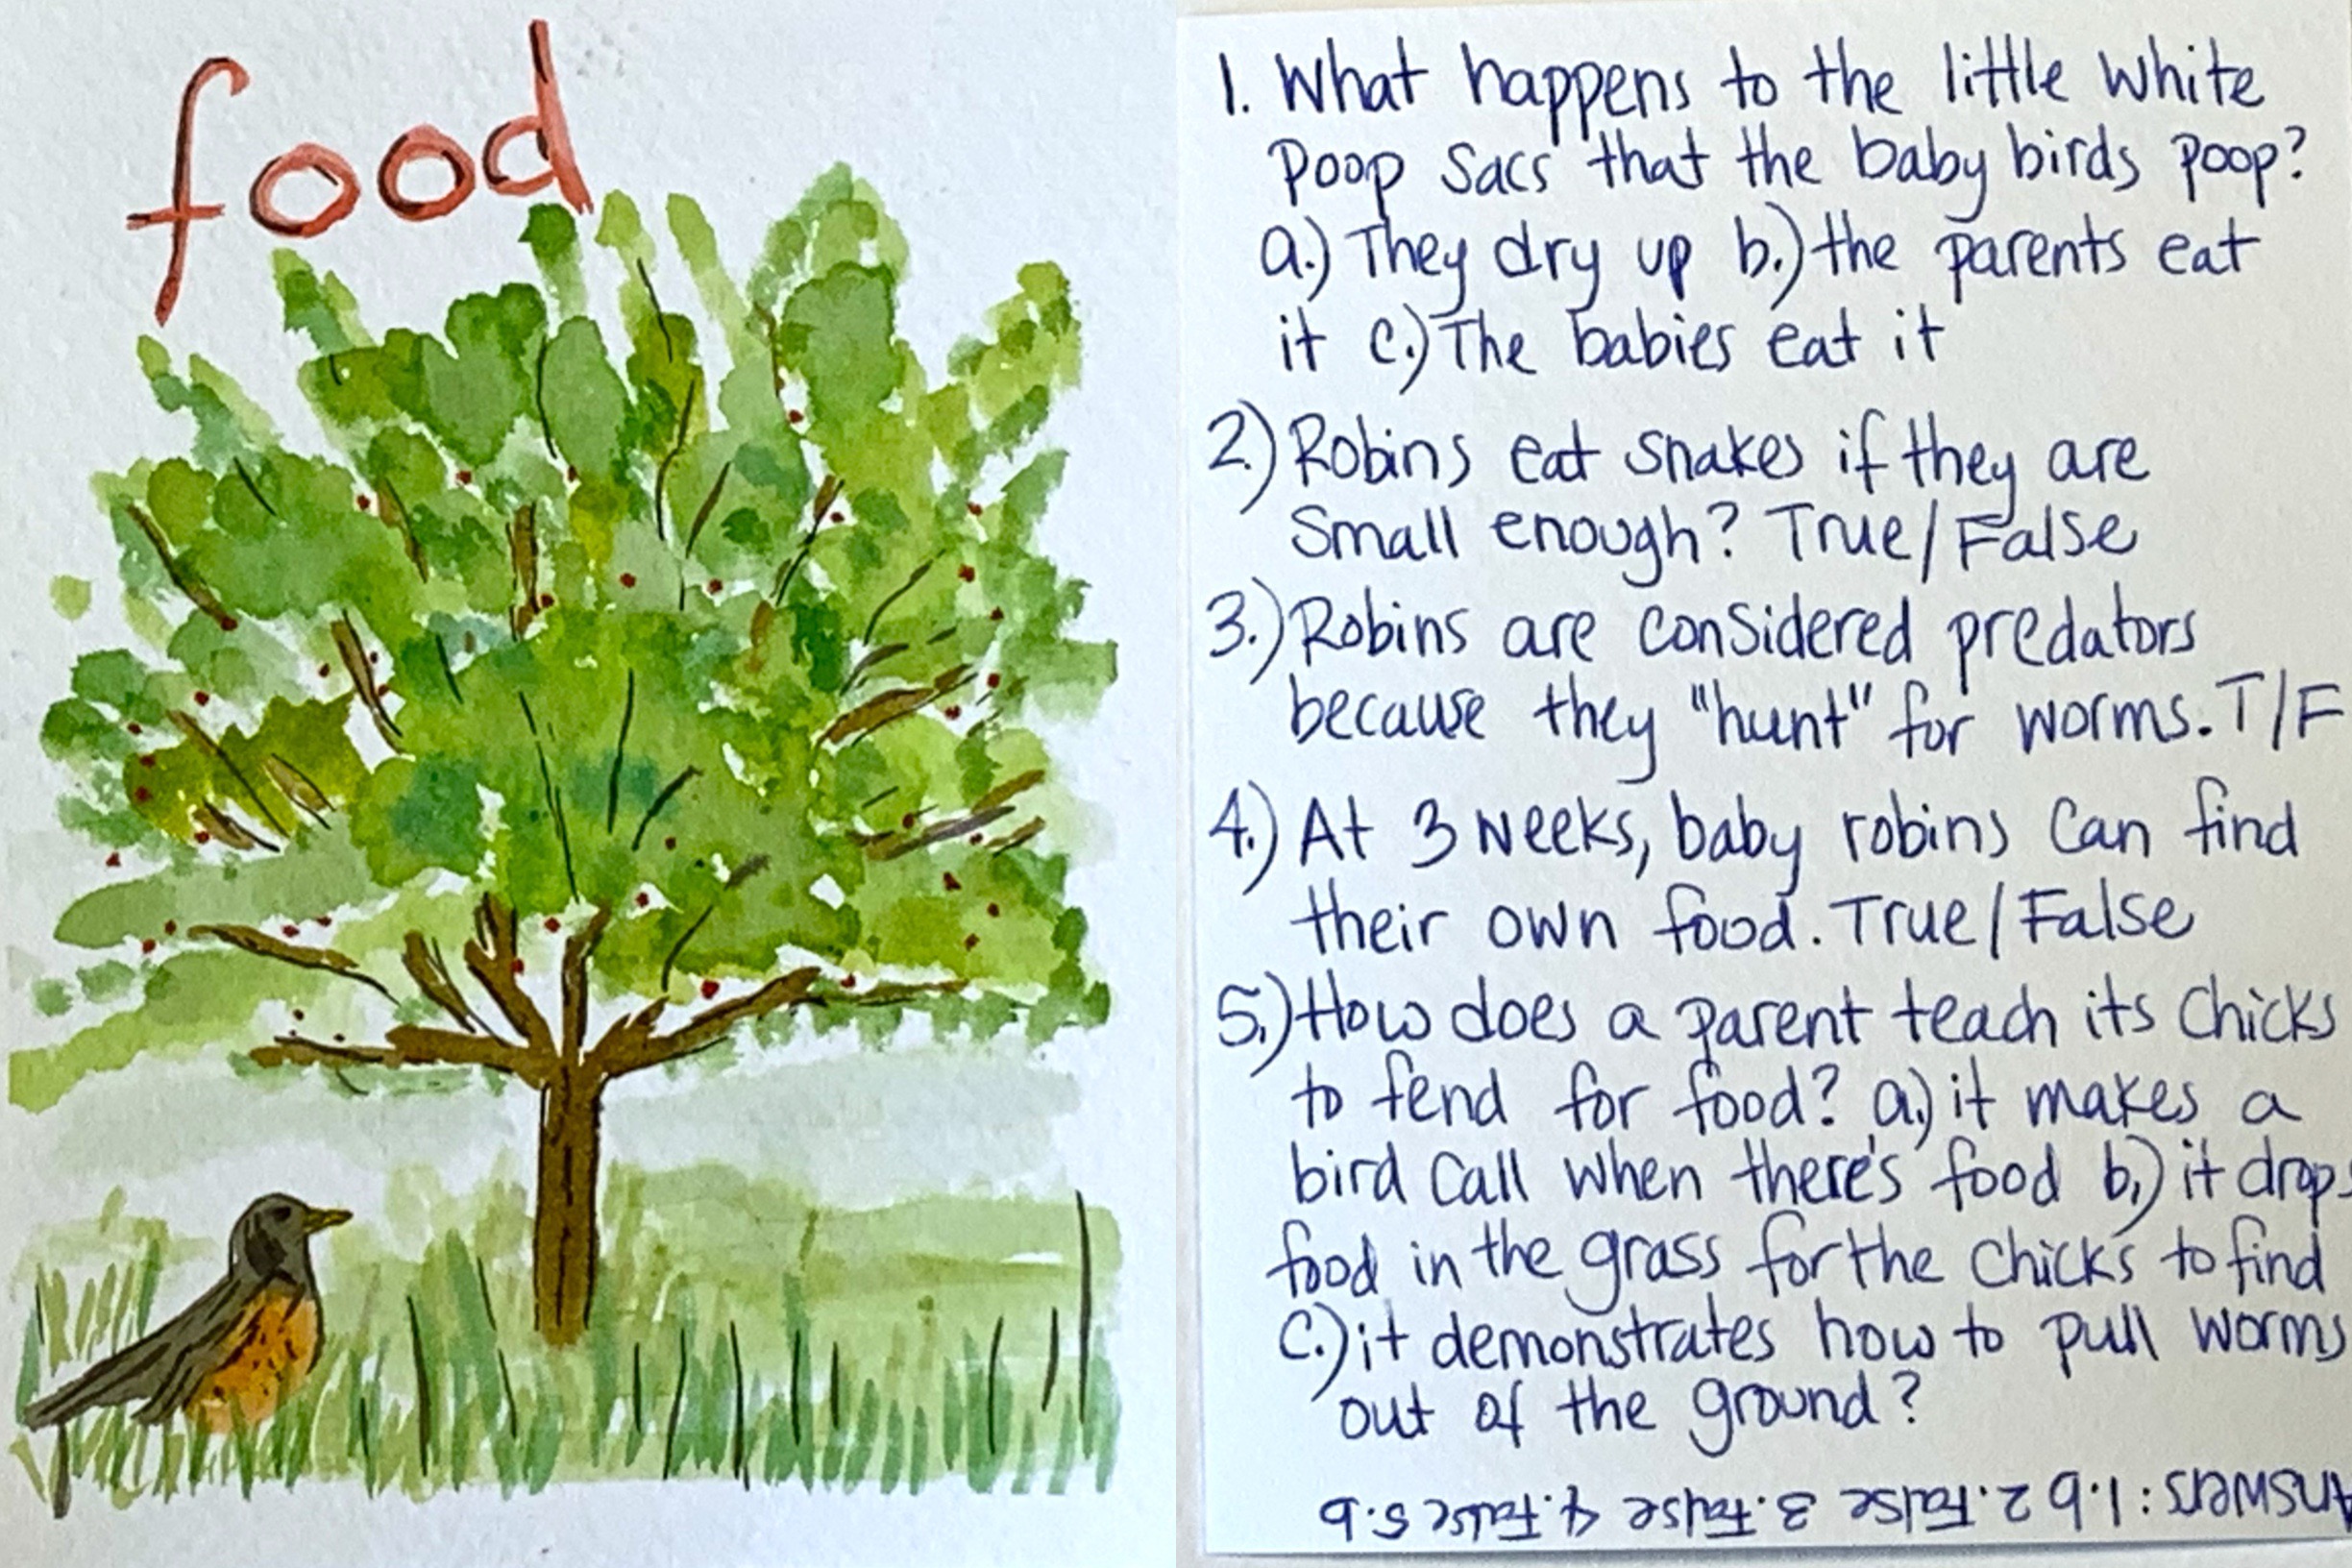 food
1. What happens to the little white
poop sacs that the baby birds poop?
a.) They dry up b.) the parents eat
it c.) The babies eat it
2.) Robins eat snakes if they are
small enough? True/False
3.) Robins are considered predators
because they "hunt" for worms. T/F
4.) At 3 weeks, baby robins can find
their own food. True/False
5.) How does a parent teach its chicks
to fend for food? a.) it makes a
bird call when there's food b.) it drops
food in the grass for the chicks to find
c.) it demonstrates how to pull worms
out of the ground?
Answers: 1.b 2. False 3. False 4. False 5.b